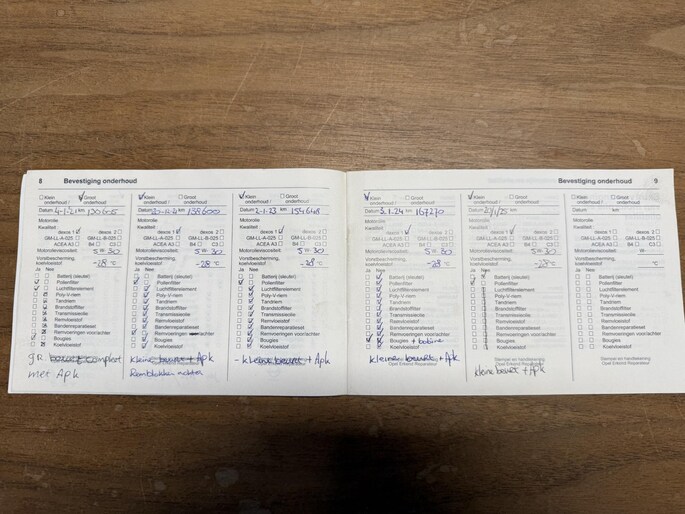 8 Bevestiging onderhoud
Klein onderhoud / Groot onderhoud
Datum 4-1-21 km
Motorolie
Kwaliteit
dexos 1 dexos 2
GM-LL-A-025 GM-LL-B-025
ACEA A3 B4 C3
Motorolieviscositeit: 5W-30
Vorstbescherming,
koelvloeistof -28 °C
Ja Nee
Batterij (sleutel)
Pollenfilter
Luchtfilterelement
Poly-V-riem
Tandriem
Brandstoffilter
Transmissieolie
Remvloeistof
Bandenreparatieset
Remvoeringen voor/achter
Bougies
Koelvloeistof
gr. beurt compleet
met Apk
Klein onderhoud / Groot onderhoud
Datum km 138600
Motorolie
Kwaliteit
dexos 1 dexos 2
GM-LL-A-025 GM-LL-B-025
ACEA A3 B4 C3
Motorolieviscositeit: 5W-30
Vorstbescherming,
koelvloeistof -28 °C
Ja Nee
Batterij (sleutel)
Pollenfilter
Luchtfilterelement
Poly-V-riem
Tandriem
Brandstoffilter
Transmissieolie
Remvloeistof
Bandenreparatieset
Remvoeringen voor/achter
Bougies
Koelvloeistof
Kleine beurt + Apk
Remblokken achter
Klein onderhoud / Groot onderhoud
Datum 2-1-23 km 154648
Motorolie
Kwaliteit
dexos 1 dexos 2
GM-LL-A-025 GM-LL-B-025
ACEA A3 B4 C3
Motorolieviscositeit: 5W-30
Vorstbescherming,
koelvloeistof -28 °C
Ja Nee
Batterij (sleutel)
Pollenfilter
Luchtfilterelement
Poly-V-riem
Tandriem
Brandstoffilter
Transmissieolie
Remvloeistof
Bandenreparatieset
Remvoeringen voor/achter
Bougies
Koelvloeistof
- kleine beurt + Apk
Bevestiging onderhoud 9
Klein onderhoud / Groot onderhoud
Datum 3.1.24 km 167270
Motorolie
Kwaliteit
dexos 1 dexos 2
GM-LL-A-025 GM-LL-B-025
ACEA A3 B4 C3
Motorolieviscositeit: 5W-30
Vorstbescherming,
koelvloeistof -28 °C
Ja Nee
Batterij (sleutel)
Pollenfilter
Luchtfilterelement
Poly-V-riem
Tandriem
Brandstoffilter
Transmissieolie
Remvloeistof
Bandenreparatieset
Remvoeringen voor/achter
Bougies + bobine
Koelvloeistof
kleine beurt + Apk
Opel Erkend Reparateur
Klein onderhoud / Groot onderhoud
Datum km
Motorolie
Kwaliteit
dexos 1 dexos 2
GM-LL-A-025 GM-LL-B-025
ACEA A3 B4 C3
Motorolieviscositeit: 5W-30
Vorstbescherming,
koelvloeistof -28 °C
Ja Nee
Batterij (sleutel)
Pollenfilter
Luchtfilterelement
Poly-V-riem
Tandriem
Brandstoffilter
Transmissieolie
Remvloeistof
Bandenreparatieset
Remvoeringen voor/achter
Bougies
Koelvloeistof
Stempel en handtekening
Opel Erkend Reparateur
kleine beurt + Apk
Klein onderhoud / Groot onderhoud
Datum km
Motorolie
Kwaliteit
dexos 1 dexos 2
GM-LL-A-025 GM-LL-B-025
ACEA A3 B4 C3
Motorolieviscositeit: W-
Vorstbescherming,
koelvloeistof °C
Ja Nee
Batterij (sleutel)
Pollenfilter
Luchtfilterelement
Poly-V-riem
Tandriem
Brandstoffilter
Transmissieolie
Remvloeistof
Bandenreparatieset
Remvoeringen voor/achter
Bougies
Koelvloeistof
Stempel en handtekening
Opel Erkend Reparateur